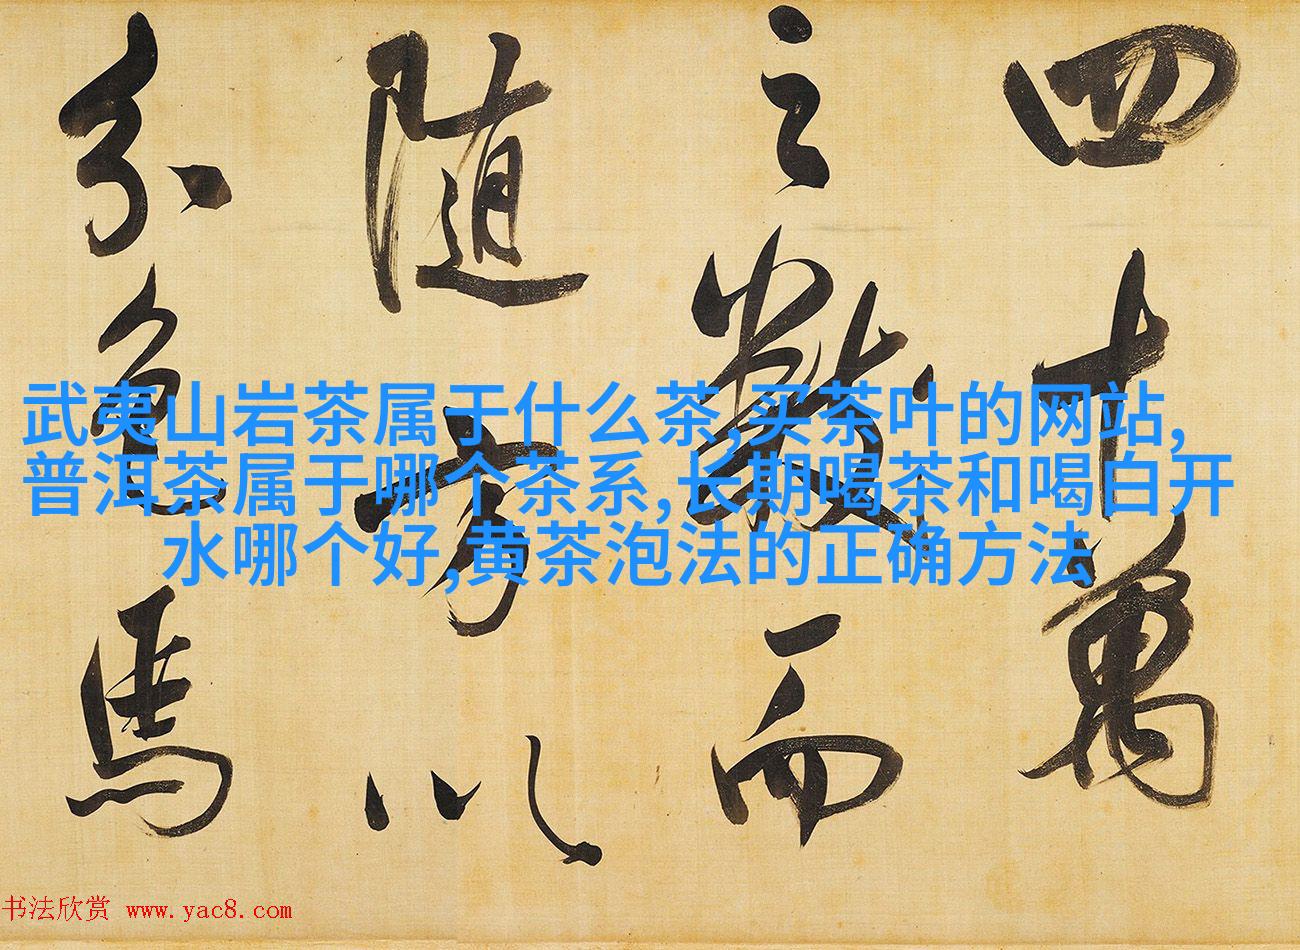 四十萬
之數而
随方以
分色馬
武夷山岩茶属于什么茶,买茶叶的网站,
普洱茶属于哪个茶系,长期喝茶和喝白开
水哪个好,黄茶泡法的正确方法
书法欣赏 www.yac8.com